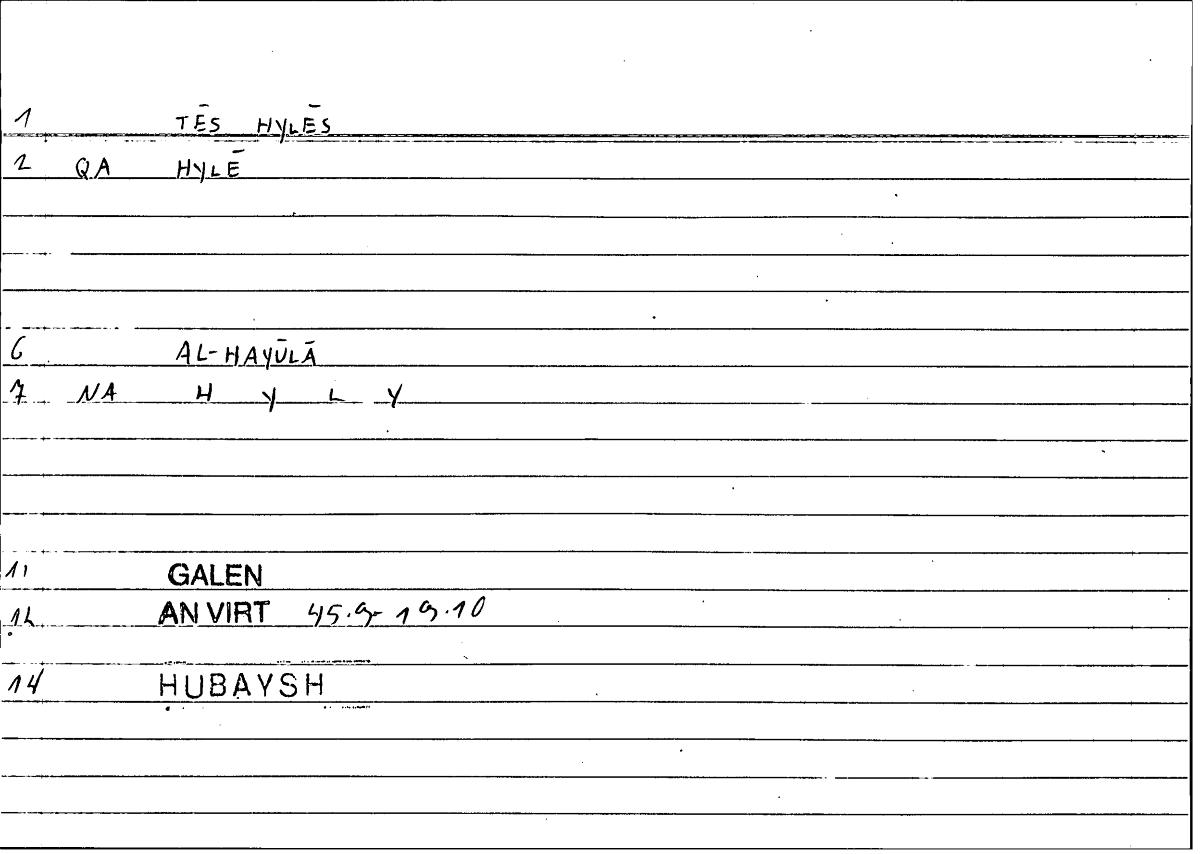 1 TĒS HYLĒS
2 QA HYLĒ
6 AL-HAYŪLĀ
7 NA H Y L Y
11 GALEN
12 AN VIRT 45.9- 19.10
14 HUBAYSH